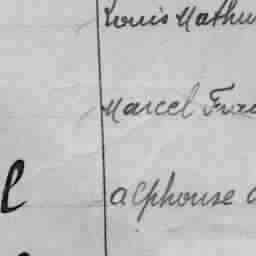 Louis Mathu
Marcel Fra
l alphonse a